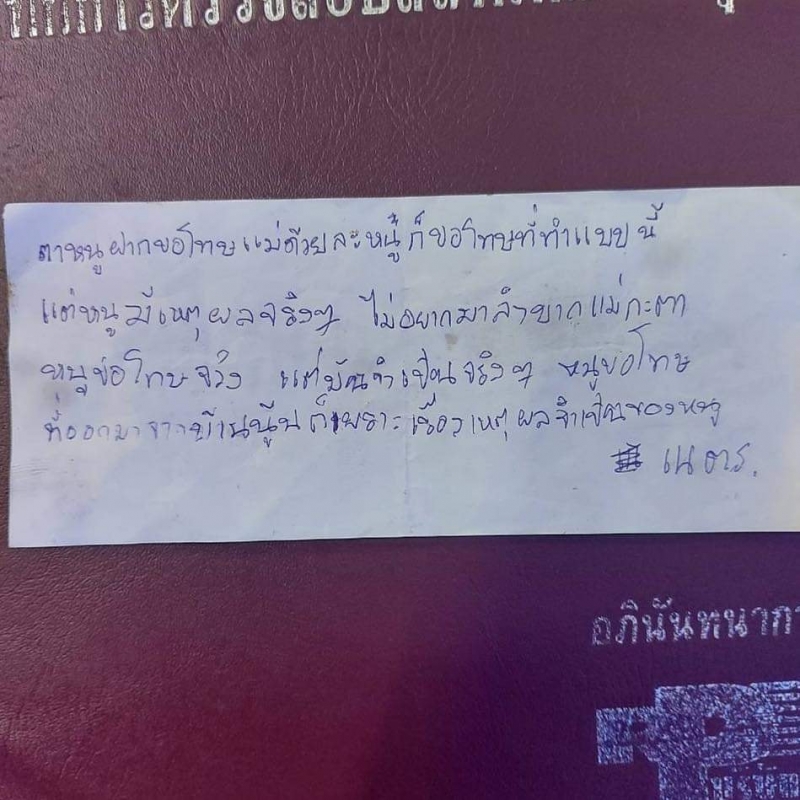 ตาหนูฝากขอโทษแม่ด้วยละหนูก็ขอโทษที่ทำแบบนี้
แต่หนูมีเหตุผลจริงๆ ไม่อยากมาลำบากแม่กะตา
หนูขอโทษจริง แต่มันจำเป็นจริงๆ หนูขอโทษ
ที่ออกมาจากบ้าน ก็เพราะเรื่องเหตุผลจำเป็นของหนู
เนตร.
อภินันทนากา